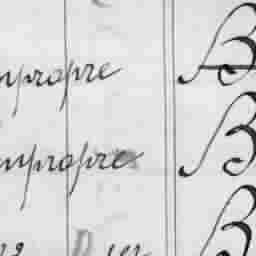 mpropre B
mpropre B
B